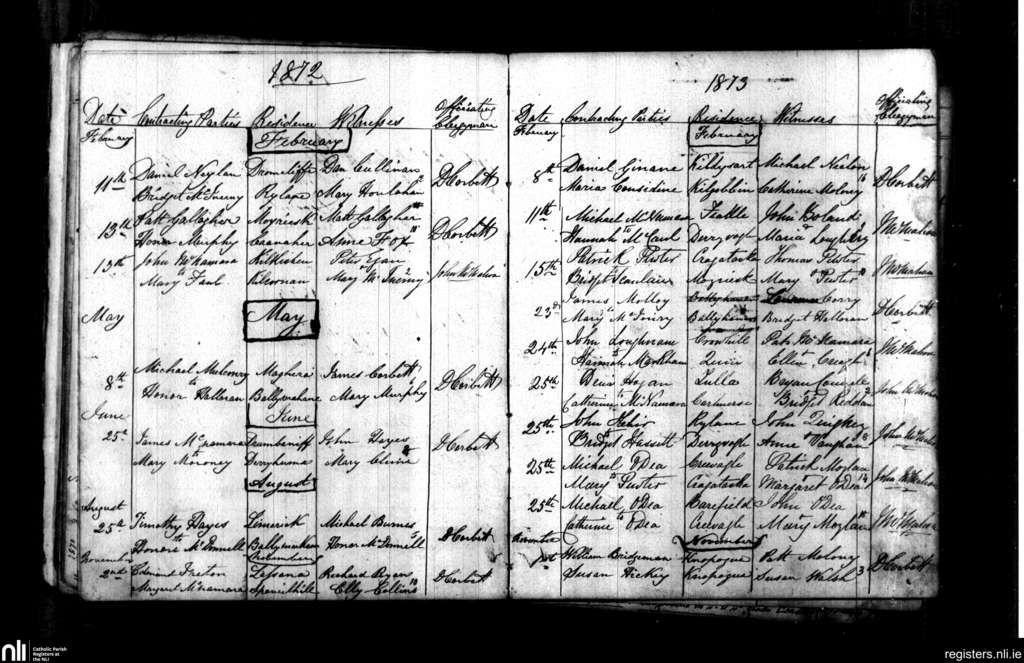 1872
Date Contracting Parties Residence Witnesses Officiating Clergyman
February
February
11th Daniel Neylan Dromcliffe Dan Cullinan D Corbett
Bridget McInerny Rylane Mary Houlahan
13th Patt Gallagher Moyriesk Matt Gallagher D Corbett
Honor Murphy Anne Fox
13th John McNamara Kilkishen Peter Egan John McMahon
to
Mary Faul Mary McInerny
May
May
8th Michael Mulconry Maghera James Corbett D Corbett
to
Honor Halloran Ballyvrahane Mary Murphy
June
June
25th James McNamara John Hayes D Corbett
to
Mary Moroney Derryhuma Mary
August
August
25th Timothy Hayes Limerick Michael Burnes D Corbett
to
Honora McDonnell Honor McDonnell
November
November
2nd Edmund Richard Rogers D Corbett
Margaret McNamara Spancilhill Elly Collins
1873
Date Contracting Parties Residence Witnesses Officiating Clergyman
February
February
8th Daniel Ginane Kildysart Michael Nealon D Corbett
Maria Considine Kilgobbin Catherine Molony
11th Michael McNamara Feakle John Boland J McMahon
to
Hannah McCaul Derryvogh Maria Loughrey
15th Patrick Pewter Cragataska Thomas Pewter J McMahon
to
Bridget Scanlan Moyriesk Mary Pewter
23rd James Molloy Corry D Corbett
to
Mary McIniry Bridget Halloran
24th John Loughnane Crowhill Patt McNamara J McMahon
to
Hannah Markham Quin Ellen
25th Denis Hogan Tulla Bryan John McMahon
to
Catherine McNamara Bridget Reddan
25th John Hehir Rylane John Quigley John McMahon
to
Bridget Hassett Derryvogle Anne Vaughan
25th Michael O'Dea Creevagh Patrick Moylan John McMahon
to
Mary Pewter Cragataska Margaret O'Dea
25th Michael O'Dea Barefield John O'Dea J McMahon
to
Catherine O'Dea Creevagh Mary Moylan
November
November
William Bridgeman Knopogue Patt Molony D Corbett
Susan Hickey Knopogue Susan Walsh
nli
Catholic Parish
Registers at
the NLI
registers.nli.ie